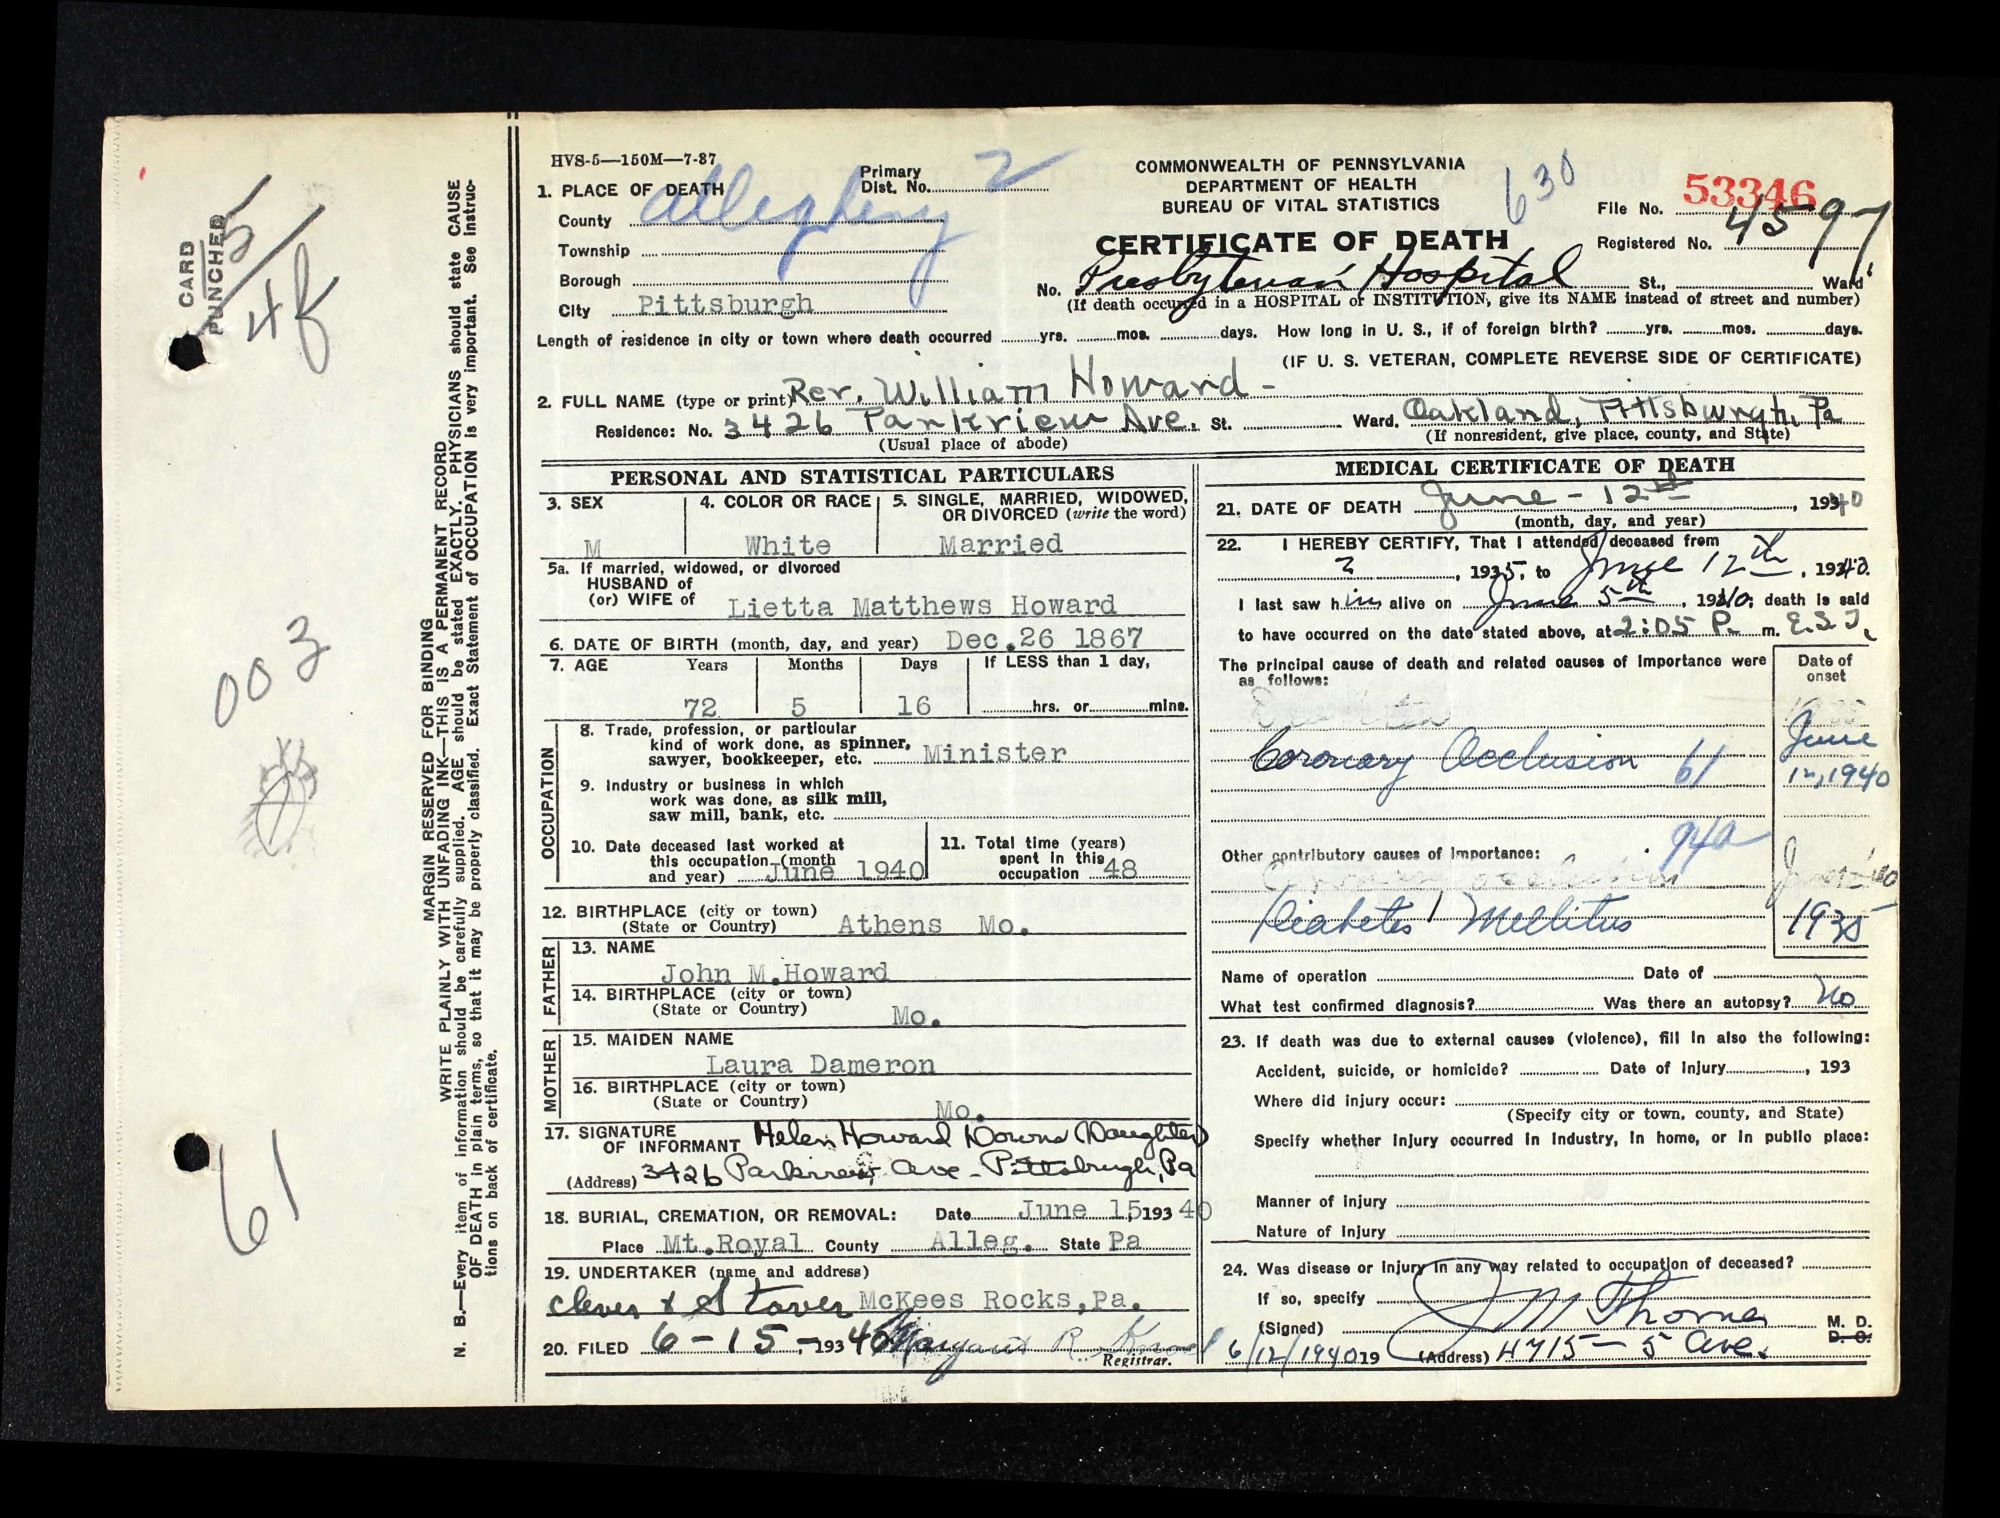 HVS-5—150M—7-37
1. PLACE OF DEATH
County Allegheny
Township
Borough
City Pittsburgh
Primary
Dist. No. 2
COMMONWEALTH OF PENNSYLVANIA
DEPARTMENT OF HEALTH
BUREAU OF VITAL STATISTICS
CERTIFICATE OF DEATH
630
File No. 53346
Registered No. 4597
No. Presbyterian Hospital St., Ward
(If death occurred in a HOSPITAL or INSTITUTION, give its NAME instead of street and number)
Length of residence in city or town where death occurred yrs. mos. days. How long in U. S., if of foreign birth? yrs. mos. days.
(IF U. S. VETERAN, COMPLETE REVERSE SIDE OF CERTIFICATE)
2. FULL NAME (type or print) Rev. William Howard -
Residence: No. 3426 Parkview Ave. St. Ward. Oakland, Pittsburgh, Pa
(Usual place of abode) (If nonresident, give place, county, and State)
PERSONAL AND STATISTICAL PARTICULARS
3. SEX
M
4. COLOR OR RACE
White
5. SINGLE, MARRIED, WIDOWED,
OR DIVORCED (write the word)
Married
5a. If married, widowed, or divorced
HUSBAND of
(or) WIFE of Lietta Matthews Howard
6. DATE OF BIRTH (month, day, and year) Dec.26 1867
7. AGE Years Months Days If LESS than 1 day,
72 5 16 hrs. or mins.
OCCUPATION
8. Trade, profession, or particular
kind of work done, as spinner,
sawyer, bookkeeper, etc. Minister
9. Industry or business in which
work was done, as silk mill,
saw mill, bank, etc.
10. Date deceased last worked at
this occupation (month
and year) June 1940
11. Total time (years)
spent in this
occupation 48
12. BIRTHPLACE (city or town)
(State or Country) Athens Mo.
FATHER
13. NAME
John M.Howard
14. BIRTHPLACE (city or town)
(State or Country) Mo.
MOTHER
15. MAIDEN NAME
Laura Dameron
16. BIRTHPLACE (city or town)
(State or Country) Mo.
17. SIGNATURE
OF INFORMANT Helen Howard Downs (Daughter)
(Address) 3426 Parkview Ave - Pittsburgh, Pa
18. BURIAL, CREMATION, OR REMOVAL: Date June 15, 193 40
Place Mt.Royal County Alleg. State Pa
19. UNDERTAKER (name and address)
Clever & Stover McKees Rocks,Pa.
20. FILED 6-15-, 193 40 Margaret R.
Registrar.
MEDICAL CERTIFICATE OF DEATH
21. DATE OF DEATH June - 12th, 1940
(month, day, and year)
22. I HEREBY CERTIFY, That I attended deceased from
?, 1935, to June 12th, 1940.
I last saw him alive on June 5th, 1940; death is said
to have occurred on the date stated above, at 2:05 P. m. E.S.T.
The principal cause of death and related causes of importance were
as follows:
Date of
onset
Coronary Occlusion 61
June
12, 1940
Other contributory causes of importance: 94a
Diabetes Mellitus 1935
Name of operation Date of
What test confirmed diagnosis? Was there an autopsy? No
23. If death was due to external causes (violence), fill in also the following:
Accident, suicide, or homicide? Date of injury , 193
Where did injury occur:
(Specify city or town, county, and State)
Specify whether injury occurred in industry, in home, or in public place:
Manner of injury
Nature of injury
24. Was disease or injury in any way related to occupation of deceased?
If so, specify
(Signed) J M Thorne M. D.
D. O.
6/12/1940 19 (Address) 4715 - 5 Ave.
MARGIN RESERVED FOR BINDING
WRITE PLAINLY WITH UNFADING INK—THIS IS A PERMANENT RECORD
N. B.—Every item of information should be carefully supplied. AGE should be stated EXACTLY. PHYSICIANS should state CAUSE
OF DEATH in plain terms, so that it may be properly classified. Exact Statement of OCCUPATION is very important. See instruc-
tions on back of certificate.
CARD
PUNCHED
5
48
003
61